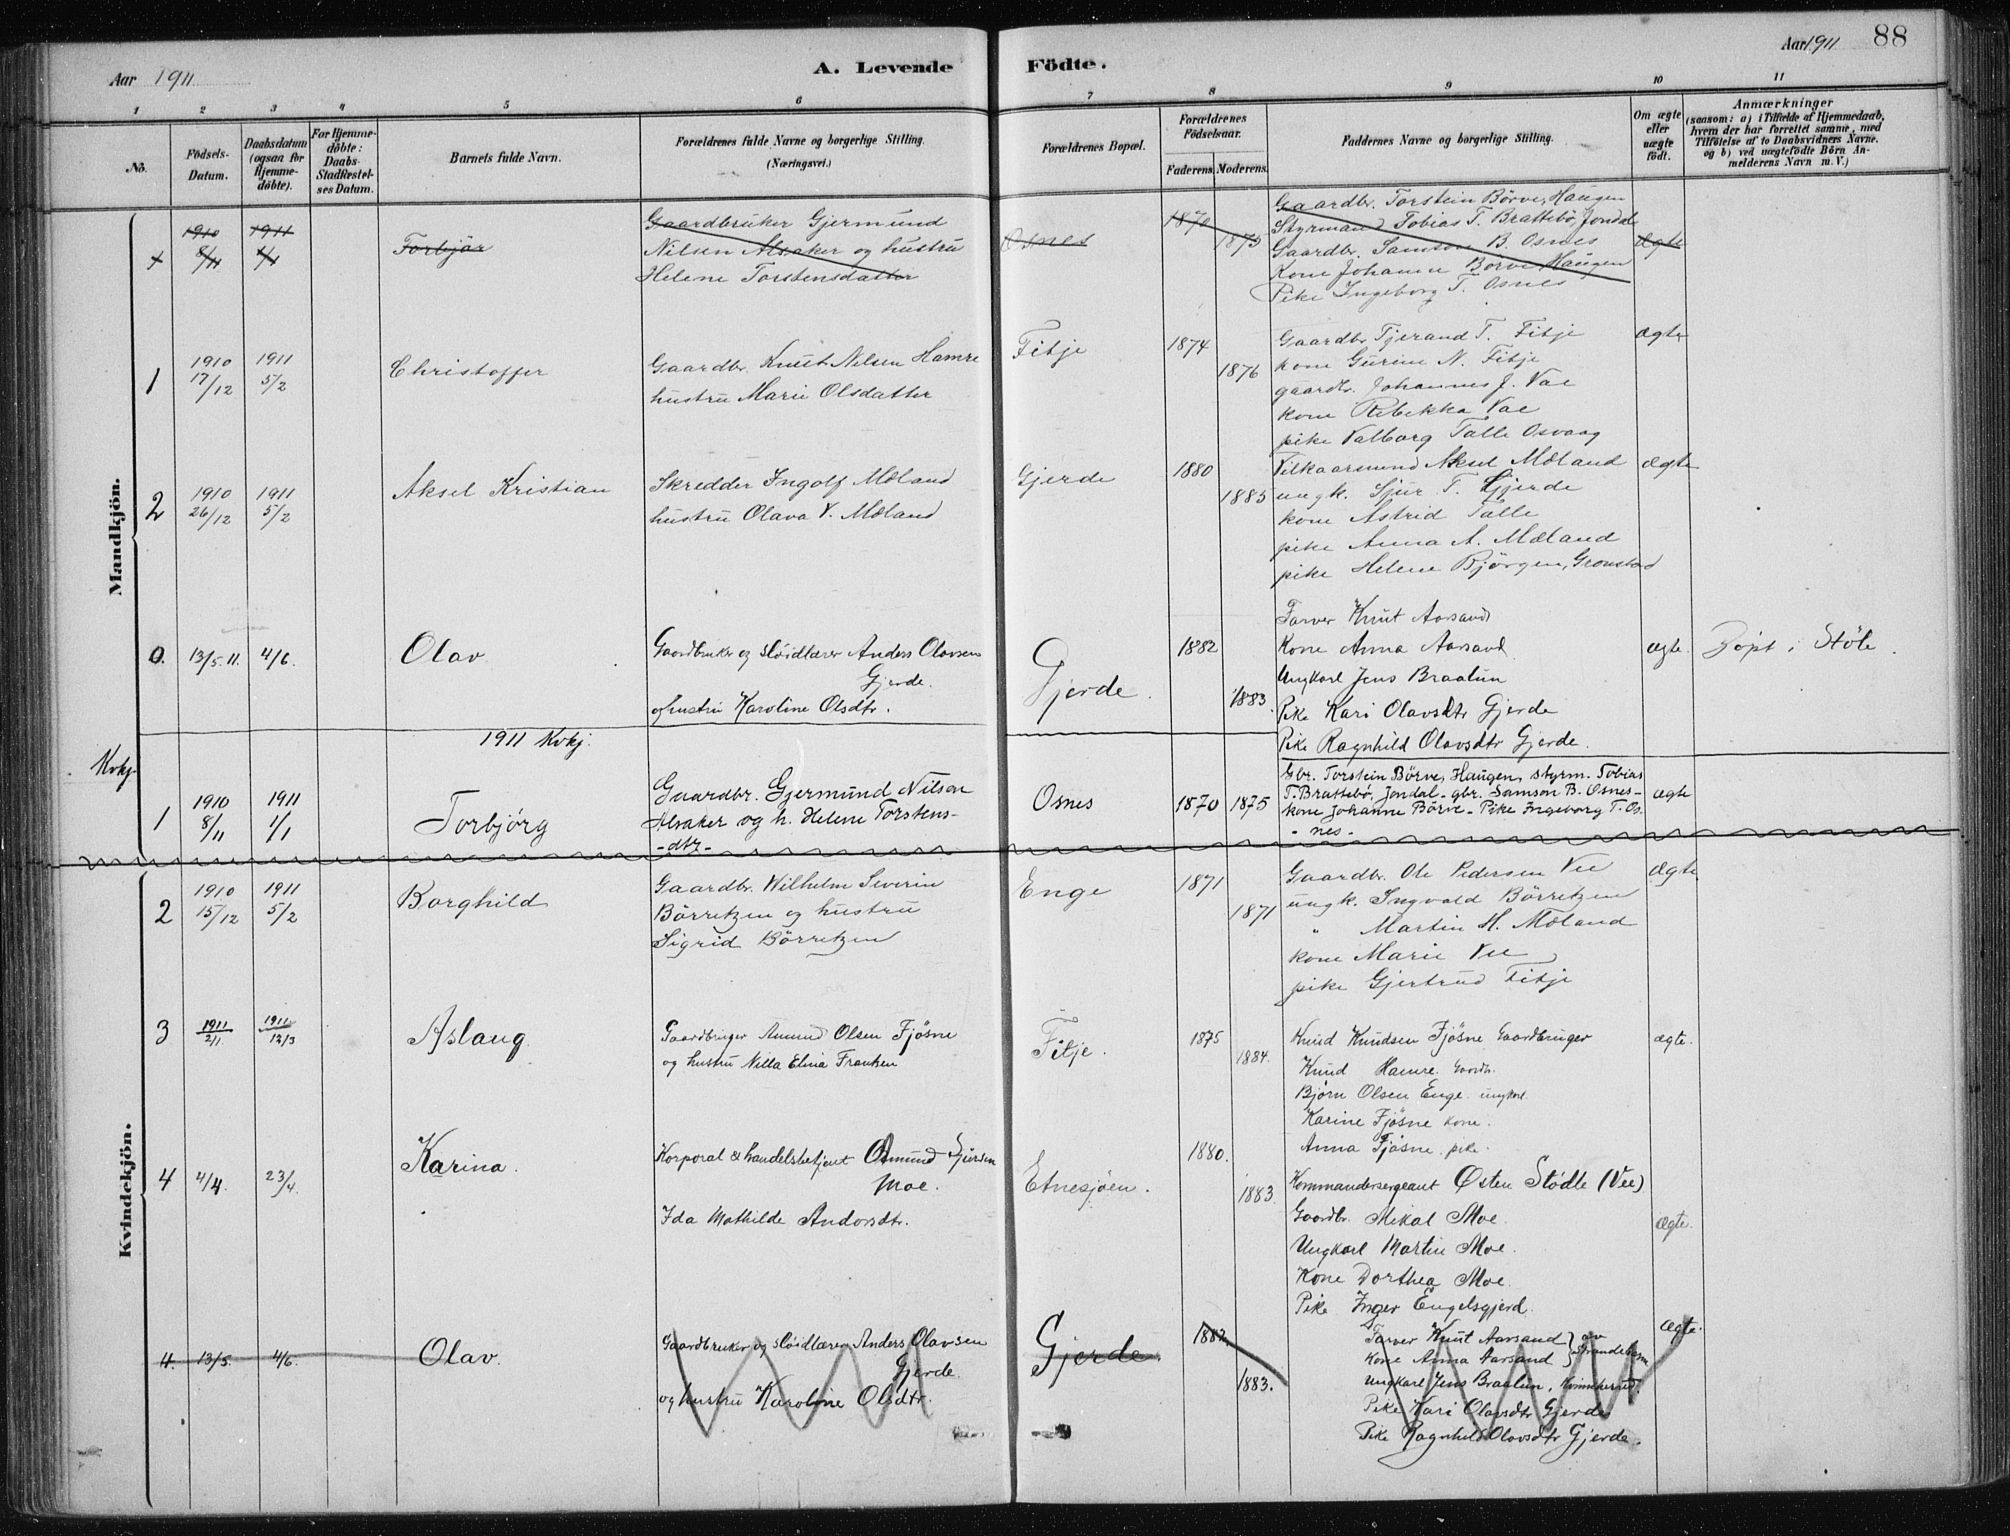 Aar 1911
A. Levende Födte.
Aar 1911 88
1 2 3 4 5 6 7 8 9 10 11
No.
Födsels-Datum.
Daabsdatum (ogsaa for Hjemmedöbte).
For Hjemmedöbte: Daabs-Stadfestelses Datum.
Barnets fulde Navn.
Forældrenes fulde Navne og borgerlige Stilling. (Næringsvei.)
Forældrenes Bopæl.
Forældrenes Födselsaar.
Faderens. Moderens.
Faddernes Navne og borgerlige Stilling.
Om ægte eller uægte födt.
Anmærkninger
(saasom: a) i Tilfælde af Hjemmedaab, hvem der har forrettet samme, med Tilföielse af to Daabsvidners Navne, og b) ved uægtefödte Börn Anmelderens Navn m. V.)
Mandkjön.
1910 8/11
1911 1/1
Torbjör
Gaardbruker Gjermund
Nilsen Alsaker og hustru
Helene Torstensdatter
Osnes
1870
1875
Gaardbr. Torstein Börve, Haugen
Styrmand Tobias T. Brattebö, Jondal
Gaardbr. Samson B. Osnes
Kone Johanne Börve Haugen
Pike Ingeborg T. Osnes
ægte
1
1910 17/12
1911 5/2
Christoffer
Gaardbr. Knut Nilsen Hamre
hustru Marie Olsdatter
Fitje
1874
1876
Gaardbr. Tjerand T. Fitje
kone Gurine N. Fitje
gaardbr. Johannes J. Vae
kone Rebekka Vae
pike Valborg Talle Osvaag
ægte
2
1910 26/12
1911 5/2
Aksel Kristian
Skredder Ingolf Mæland
hustru Olava V. Mæland
Gjerde
1880
1885
Vilkaarsmand Aksel Mæland
ungk. Sjur T. Gjerde
kone Astrid Talle
pike Anna A. Mæland
pike Helene Bjørgen, Gronstad
ægte
0. 13/5.11. 4/6.
Olav
Gaardbruker og sløidlærer Anders Olavsen
Gjerde.
og hustru Karoline Olsdtr.
Gjerde.
1882
1883.
Farver Knut Aarsand
Kone Anna Aarsand
Ungkarl Jens Braatun
Pike Kari Olavsdtr Gjerde
Pike Ragnhild Olavsdtr Gjerde.
ægte.
Døpt i Støle.
1911 Kvkj.
Kvkj.
1
1910 8/11
1911 1/1
Torbjørg
Gaardbr. Gjermund Nilsen
Alsaker og h. Helene Torstens-
-dtr-
Osnes
1870 1875
Gbr. Torstein Börve, Haugen, styrm. Tobias
T. Brattebö, Jondal - gbr. Samson B. Osnes -
kone Johanne Börve - Pike Ingeborg T. Os-
-nes-
ægte
Kvindekjön.
2
1910 15/12
1911 5/2
Borghild
Gaardbr. Wilhelm Severin
Börretzen og hustru
Sigrid Börretzen
Enge
1871
1871
Gaardbr. Ole Pedersen Vee
ungk. Ingvald Börretzen
" Martin H. Mæland
kone Marie Vee
pike Gjertrud Fitje
ægte
3
1911 2/1
1911 12/3
Aslaug
Gaardbruger Amund Olsen Fjøsne
og hustru Nilla Elina Franken
Fitje.
1875
1884.
Knud Knudsen Fjøsne Gaardbruger
Knud Hamre. Gaardbr.
Bjørn Olsen Enge. ungkarl.
Karine Fjøsne kone.
Anna Fjøsne. pike.
ægte.
4 4/4. 23/4.
Karina.
Korporal & handelsbetjent Amund Sjursen
Moe.
Ida Mathilde Andorsdtr.
Etnesjøen.
1880.
1883.
Kommandersergeant Østen Stødle (Vee).
Gaardbr. Mikal Moe.
Ungkarl Martin Moe.
Kone Dorthea Moe.
Pike Inger Engelsgjerd.
ægte.
4. 13/5. 4/6.
Olav.
Gaardbruker og sløidlærer Anders Olavsen
Gjerde.
og hustru Karoline Olsdtr.
Gjerde.
1882.
1883.
Farver Knut Aarsand } av
Kone Anna Aarsand } Strandebarm
Ungkarl Jens Braatun, Kvinnherred.
Pike Kari Olavsdtr Gjerde
Pike Ragnhild Olavsdtr Gjerde.
ægte.